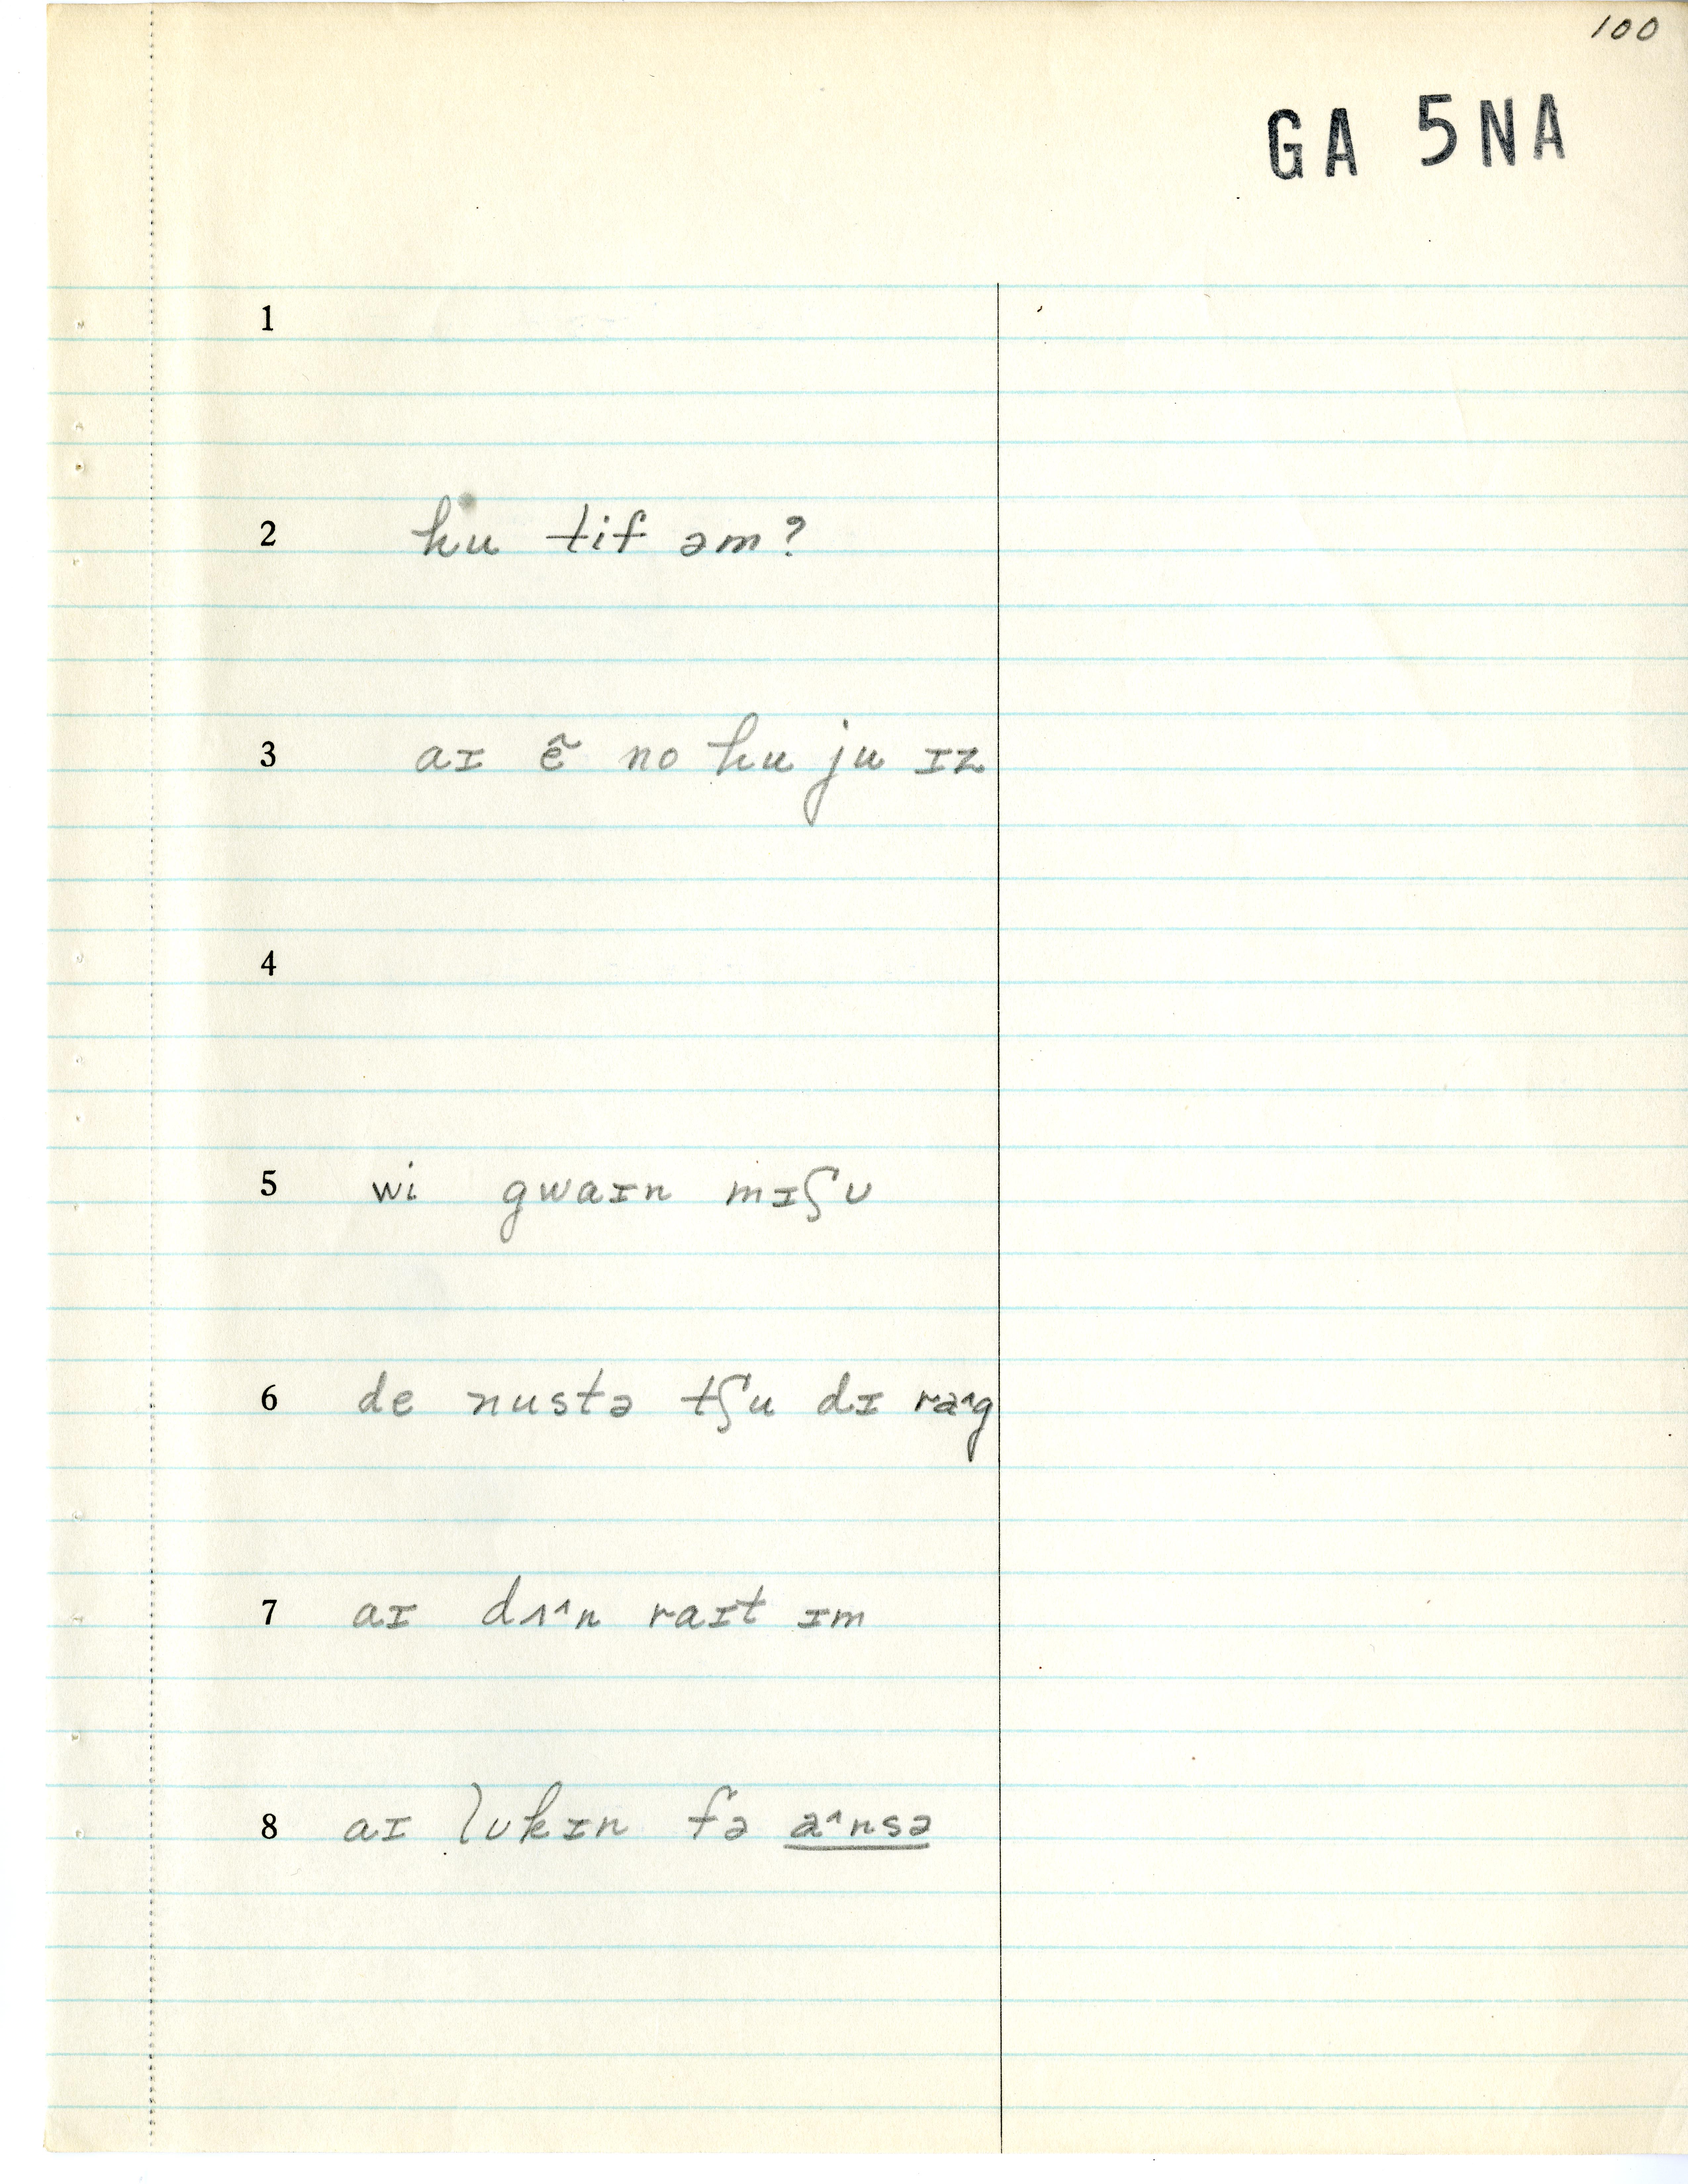 100
GA 5NA
1
2 hu tif əm?
3 aɪ ẽ no hu ju ɪz
4
5 wi gwaɪn mɪʃʊ
6 de nustə tʃu dɪ ra^g
7 aɪ dʌ^n raɪt ɪm
8 aɪ lʊkɪn fə a^nsə